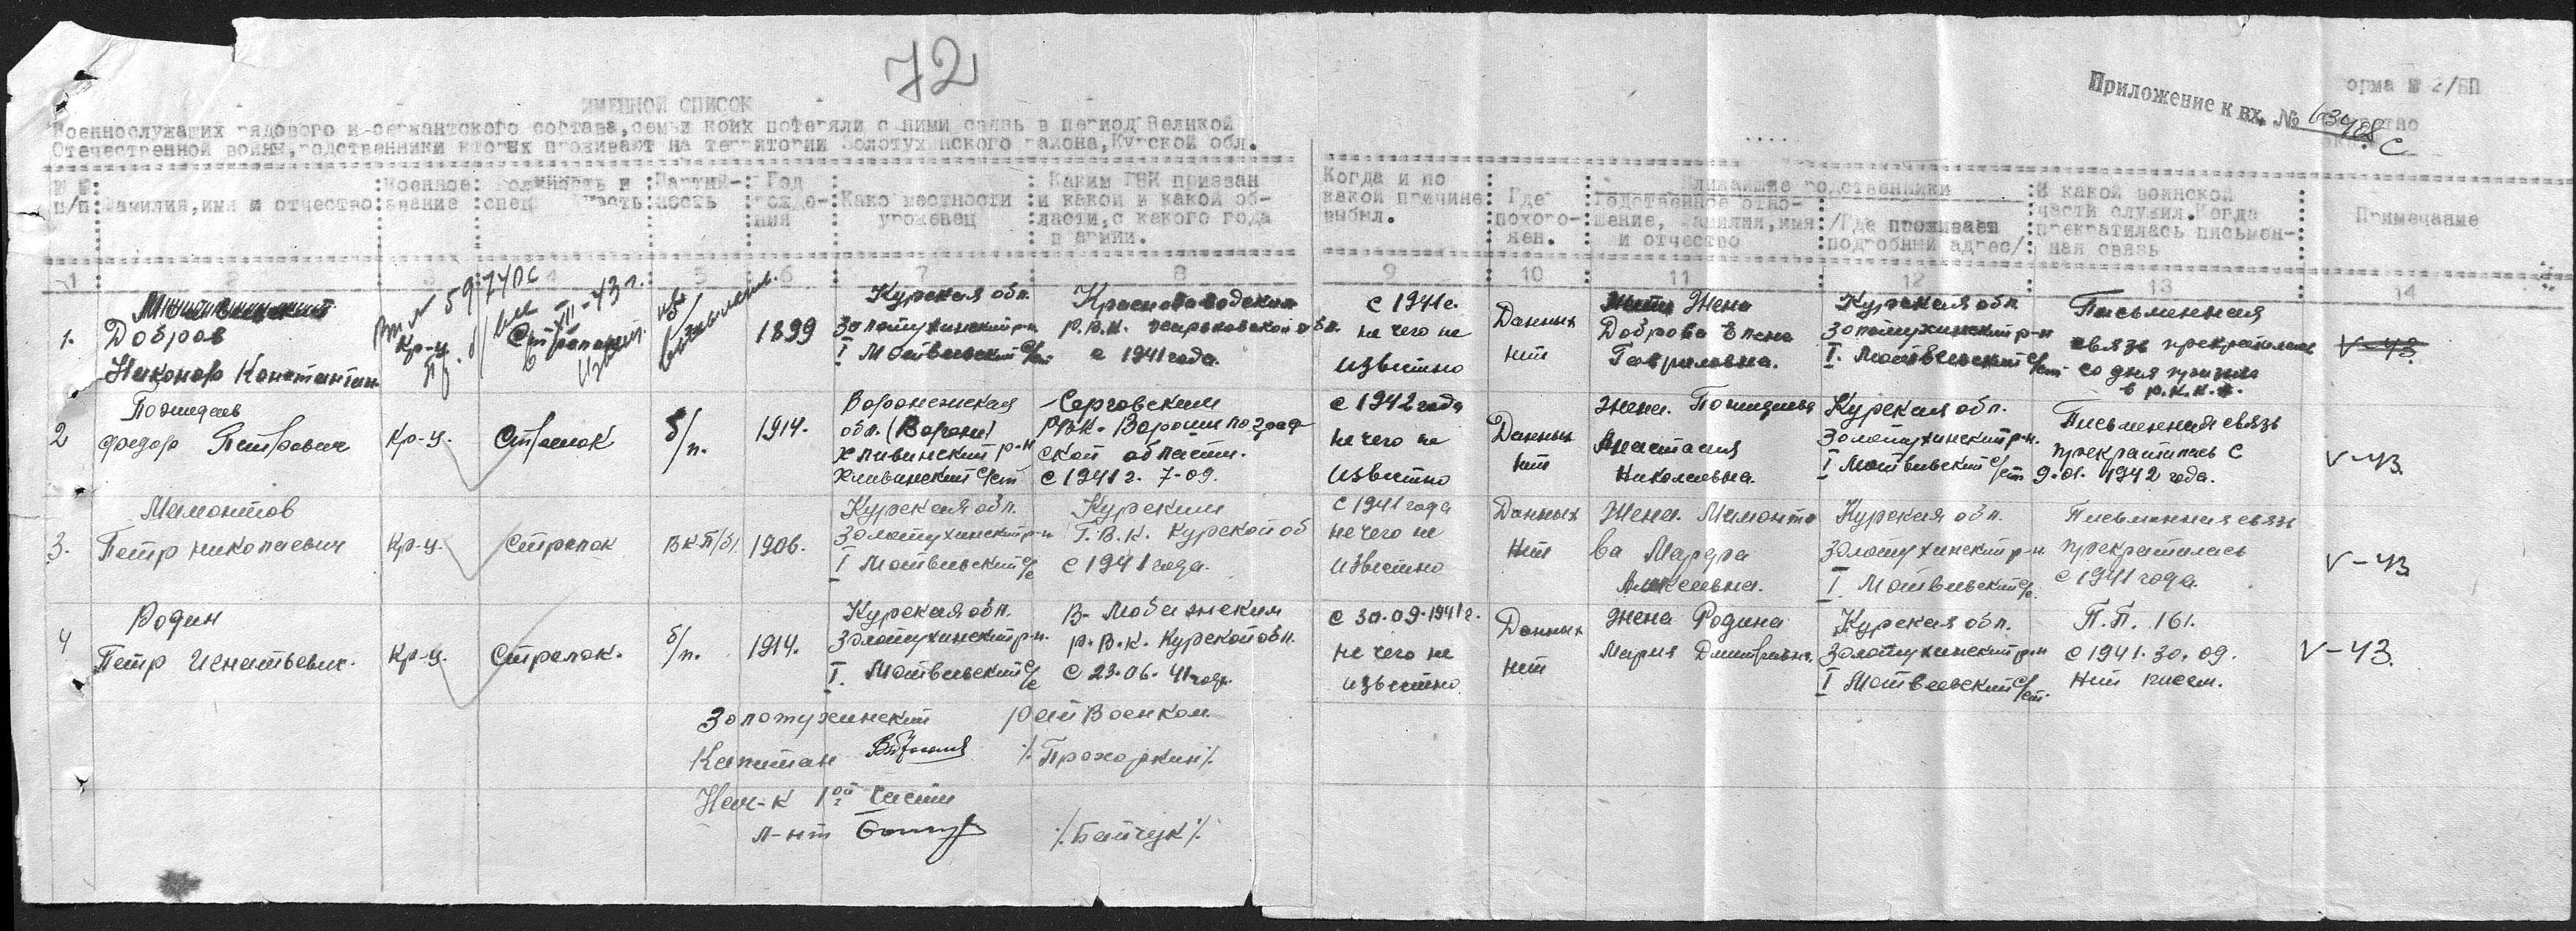 72
Приложение к вх. № 63408 с
орма № 2/БП
ИМЕННОЙ СПИСОК
Военнослужащих рядового и сержантского состава, семьи коих потеряли с ними связь в период Великой
Отечественной войны, родственники которых проживают на территории Золотухинского района, Курской обл.
№ №
п/п
Фамилия, имя и отчество
Военное
звание
Должность и
спец
Партий-
ность
Год
рожде-
ния
Како местности
уроженец
Каким РВК призван
и какой и какой об-
ласти, с какого года
в армии.
Когда и по
какой причине
выбыл.
Где
похоро-
нен.
Ближайшие родственники
Родственное отно-
шение, фамилия, имя
и отчество
/Где проживает
подробный адрес/
В какой воинской
части служил. Когда
прекратилась письмен-
ная связь
Примечание
1 2 3 4 5 6 7 8 9 10 11 12 13 14
1.
Добров
Никонор Константин
Кр-ц.
59740с
XII-43 г.
1899
Курская обл.
Золотухинский р-н
I Матвеевский с/ст
Красноградским
Р.В.К. Харьковской обл.
с 1941 года.
с 1941 г.
не чего не
известно
Данных
нет
Жена
Доброва Елена
Гавриловна.
Курская обл
Золотухинский р-н
I. Матвеевский с/ст
Письменная
связь прекратилась
со дня призыва
в Р.К.К.А.
V-43
2
Пожидаев
Федор Петрович
Кр-ц.
Стрелок
б/п.
1914.
Воронежская
обл. (Ворон)
Хливинский р-н
Хливинский с/ст
Серговским
РВК. Ворошилоград
ской области.
с 1941 г. 7-09.
с 1942 года
не чего не
известно
Данных
нет
Жена. Пожидаева
Анастасия
Николаевна.
Курская обл.
Золотухинский р-н.
I Матвеевский с/ст
Письменная связь
прекратилась с
9.01. 1942 года.
V-43.
3.
Мамонтов
Петр Николаевич
Кр-ц.
Стрелок
ВКП/б/
1906.
Курская обл.
Золотухинский р-н
I Матвеевский с/с
Курским
Г.В.К. Курской об
с 1941 года.
с 1941 года
не чего не
известно
Данных
нет
Жена. Мамонто
ва Марфа
Алексевна.
Курская обл.
Золотухинский р-н
I. Матвеевский с/с.
Письменная связь
прекратилась
с 1941 года.
V-43
4
Родин
Петр Игнатьевич.
Кр-ц.
Стрелок.
б/п.
1914.
Курская обл.
Золотухинский р-н.
I. Матвеевский с/с
В-Любажским
Р.В.К. Курской обл.
с 23.06.41 года.
с 30.09.1941 г.
не чего не
известно.
Данных
нет
Жена Родина
Мария Дмитриевна.
Курская обл.
Золотухинский р-н
I Матвеевский с/ст.
П.П. 161.
с 1941. 30. 09.
Нет писем.
V-43.
Золотухинский Райвоенком
Капитан /Прохоркин/.
Нач-к 1ой части
л-нт /Байчук/.